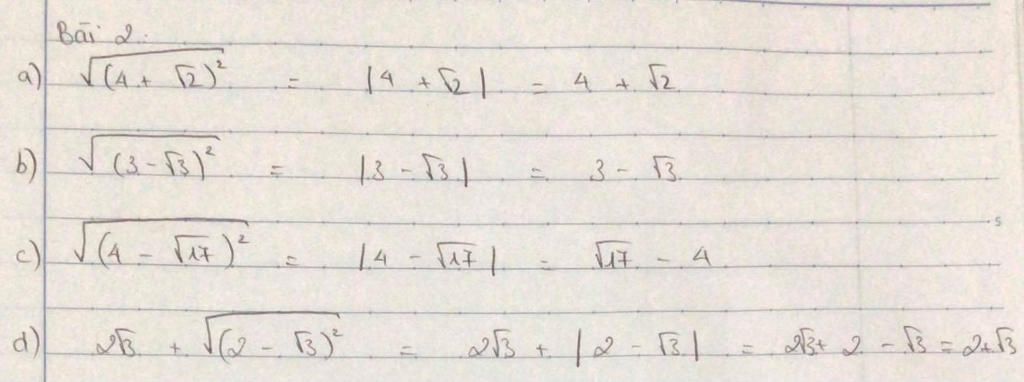 Bài 2:
a) √(4 + √2)² = |4 + √2| = 4 + √2
b) √(3 - √3)² = |3 - √3| = 3 - √3
c) √(4 - √17)² = |4 - √17| = √17 - 4
d) 2√3 + √(2 - √3)² = 2√3 + |2 - √3| = 2√3 + 2 - √3 = 2 + √3